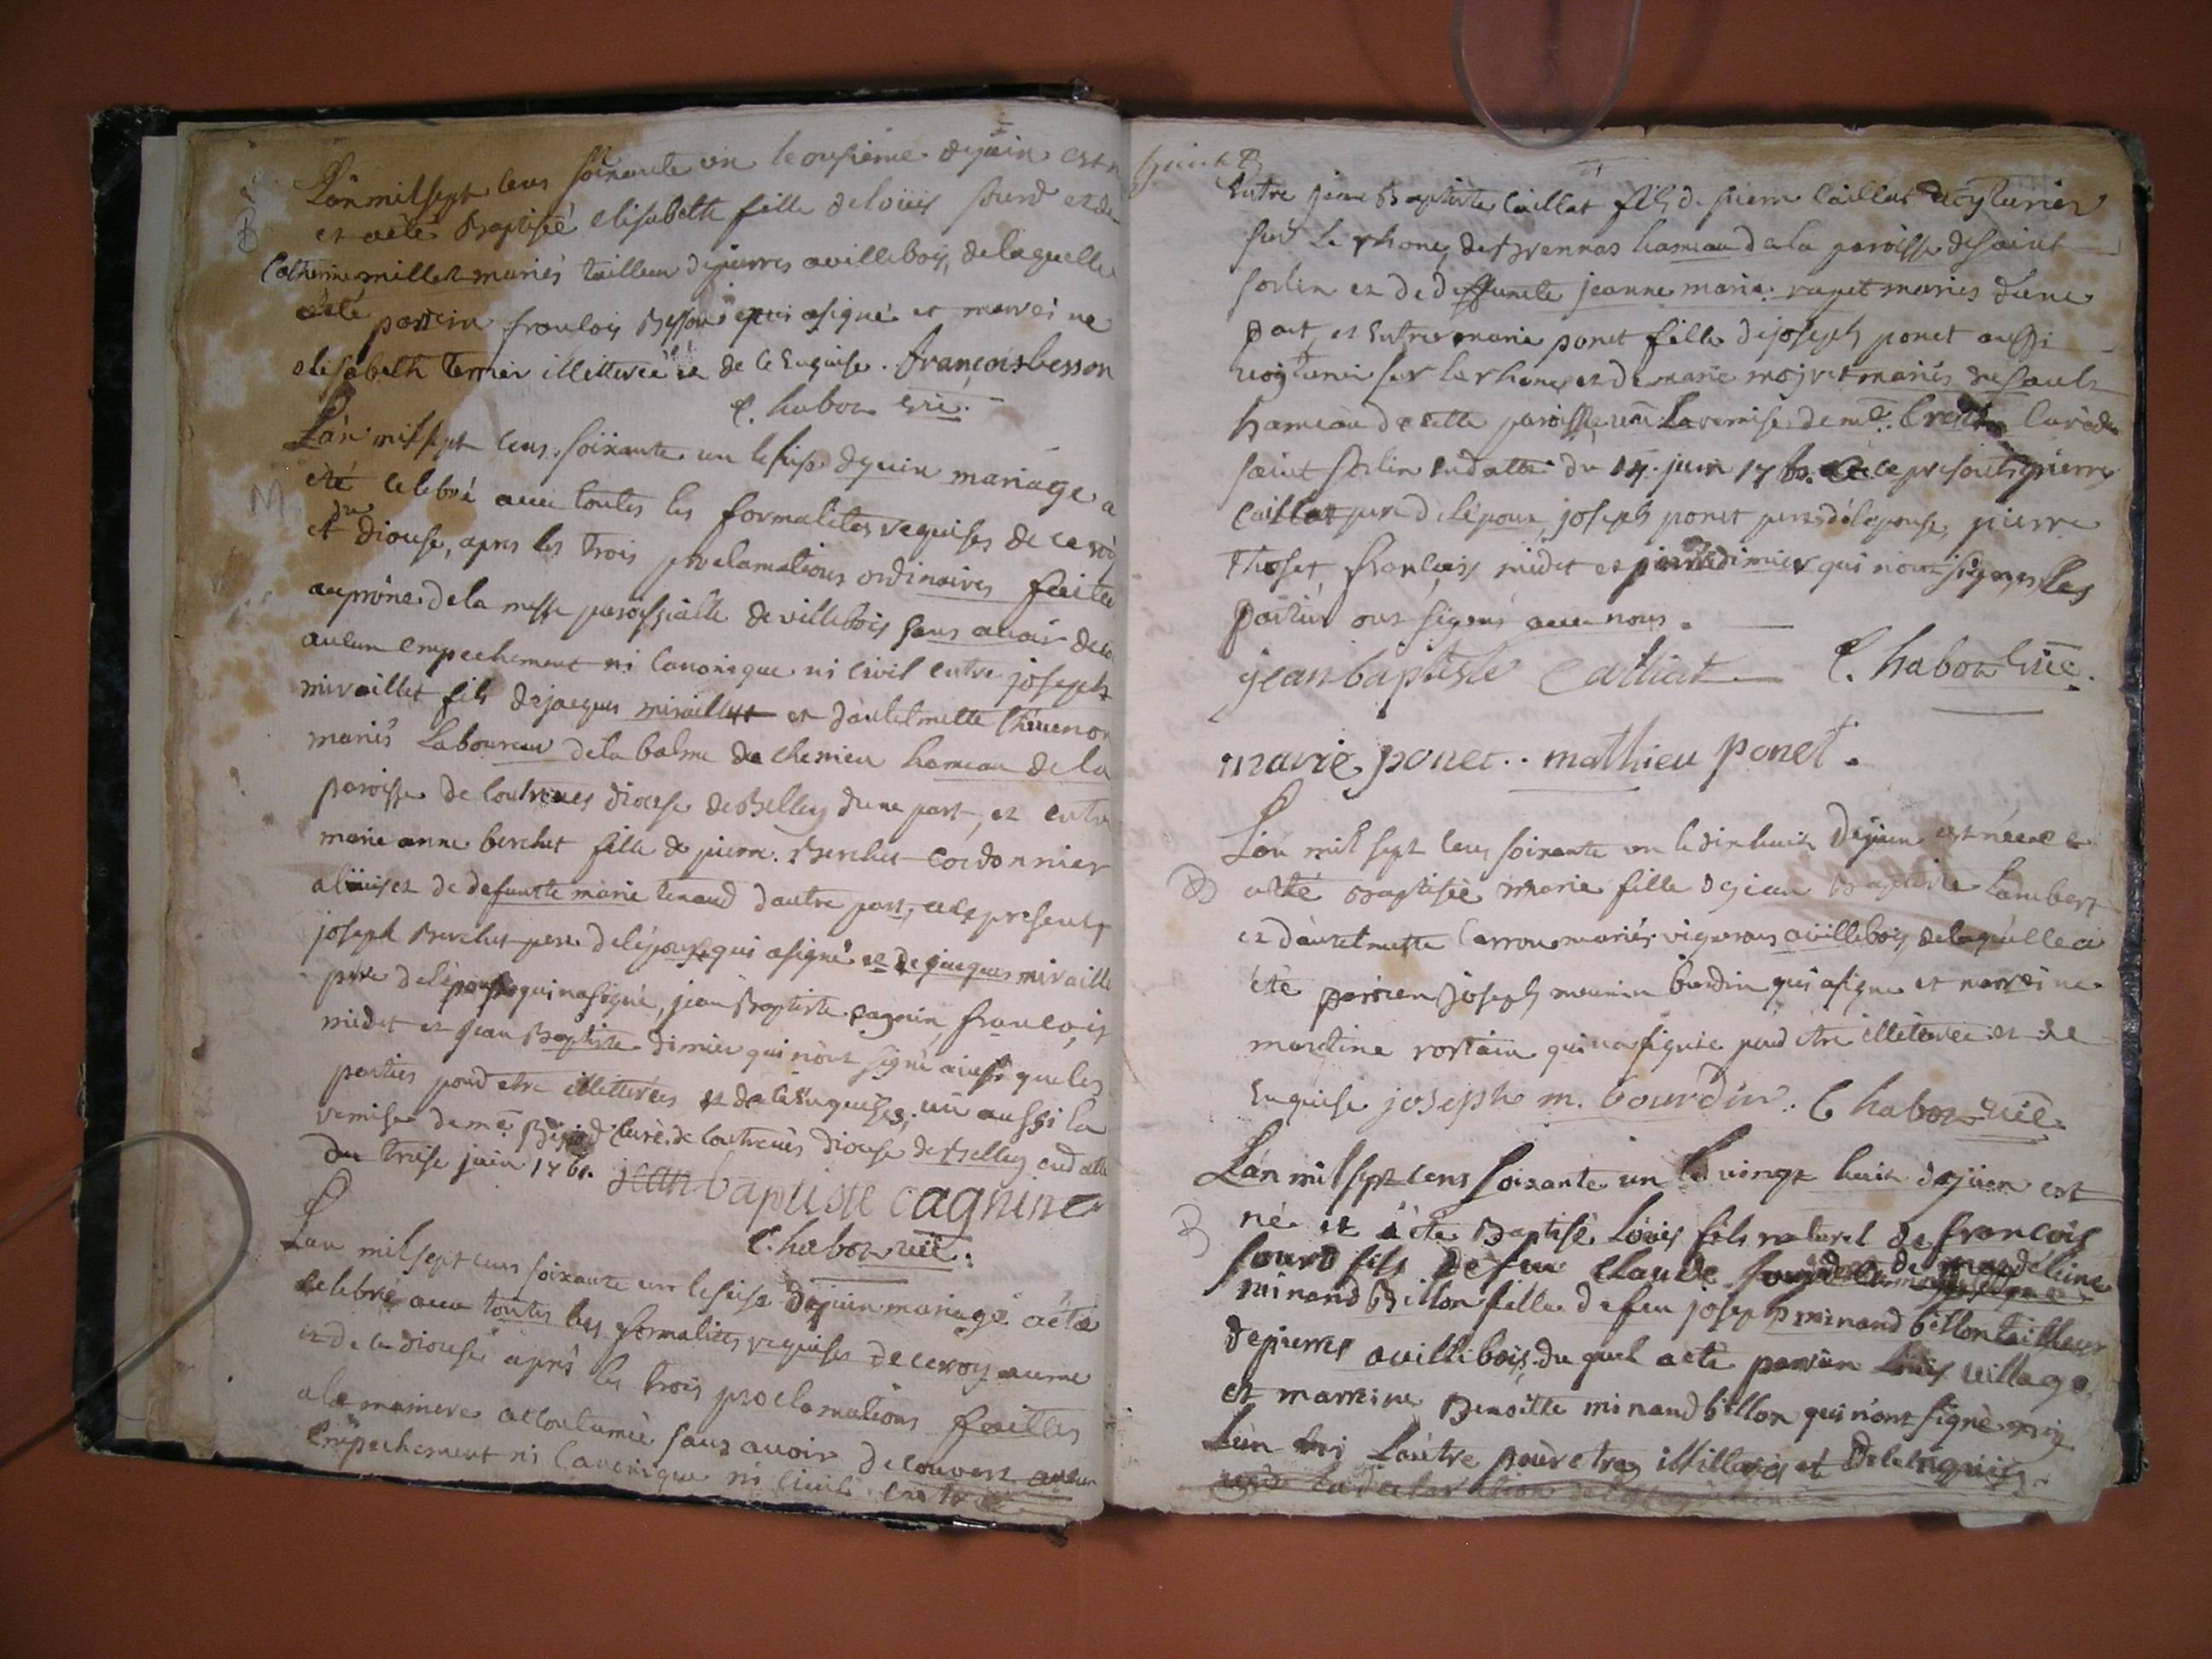 L'an mil sept cens soixante un le onsieme de juin est n
et a été Baptisée elisabeth fille de loüis sourd et de
Catherine millet mariés tailleur de pierres a villebois, de laquelle
a été parrein francois Besson qui a signé et marreine
elisabeth terrier illitterée et de ce enquise. françois besson
C. habot vic.
L'an mil sept cens soixante un le seise de juin mariage a
M
été celebré avec toutes les formalités requises de ce roy
et du diocese, apres les trois proclamations ordinaires faites
au prône de la messe paroissialle de villebois sans avoir deco
aucun empechement ni canonique ni civil entre joseph
miraillet fils de jacques miraillet et d'antelmette thevenon
mariés Laboureur de la balme de chemieu hameau de la
paroisse de loutrenes diocese de Belley d'une part, et entre
marie anne berchet fille de pierre Berchet cordonnier
et de defuncte marie tenaud d'autre part, presents
joseph Berchet pere de l'épouse qui a signé et de jacques miraille
pere de l'époux qui n'a signé, jean Baptiste cagnin, francois
midet et jean Baptiste dimier qui n'ont signé ainsi que les
parties pour etre illitterées et de ce enquises, vû aussi la
remise de me curé de loutrenes diocese de Belley en datte
du treise juin 1761. jean baptiste cagnin
C. habot vic.
L'an mil sept cens soixante un le seise de juin mariage a été
celebré avec toutes les formalités requises de ce royaume
et de ce diocese apres les trois proclamations faittes
a la maniere accoutumée sans avoir decouvert aucun
empechement ni canonique ni civil entre
B
Entre jean Baptiste Caillat fils de pierre Caillat voyturier
sur le rhone de Brennas hameau de la paroisse de saint
sorlin et de deffuncte jeanne marie rapet mariés d'une
part, et entre marie ponet fille de joseph ponet aussi
voyturier sur le rhone et de marie mariés du sault
hameau de cette paroisse, vû la remise de me. Curé de
saint sorlin en datte du 14. juin 1761. presents pierre
Caillat pere de l'époux, joseph ponet pere de l'epouse, pierre
Thoset, francois midet et pierre dimier qui n'ont signés, les
parties ont signés avec nous.
jean baptiste Cailliat C. habot vic.
marie ponet.. mathieu ponet.
L'an mil sept cens soixante un le dix huit de juin est née et
B a été Baptisée marie fille de jean Baptiste Lambert
et d'antelmette Carron mariés vignerons a villebois, de laquelle a
été parrien joseph mounin burdin qui a signé et marreine
martine rostain qui n'a signée pour etre illiterée et de
Enquise joseph m. bourdin. C habot vic.
L'an mil sept cens soixante un le vingt huit de juin est
B né et a été Baptisé Loüis fils naturel de françois
sourd fils de feu claude sourd et de magdeleine
minand Billon fille de feu joseph minand billon tailleur
de pierres a villebois, du quel a été parrain Loüis village
et marreine Benoitte minand billon qui n'ont signé ni
l'un ni l'autre pour etres illitterés et de ce enquis.